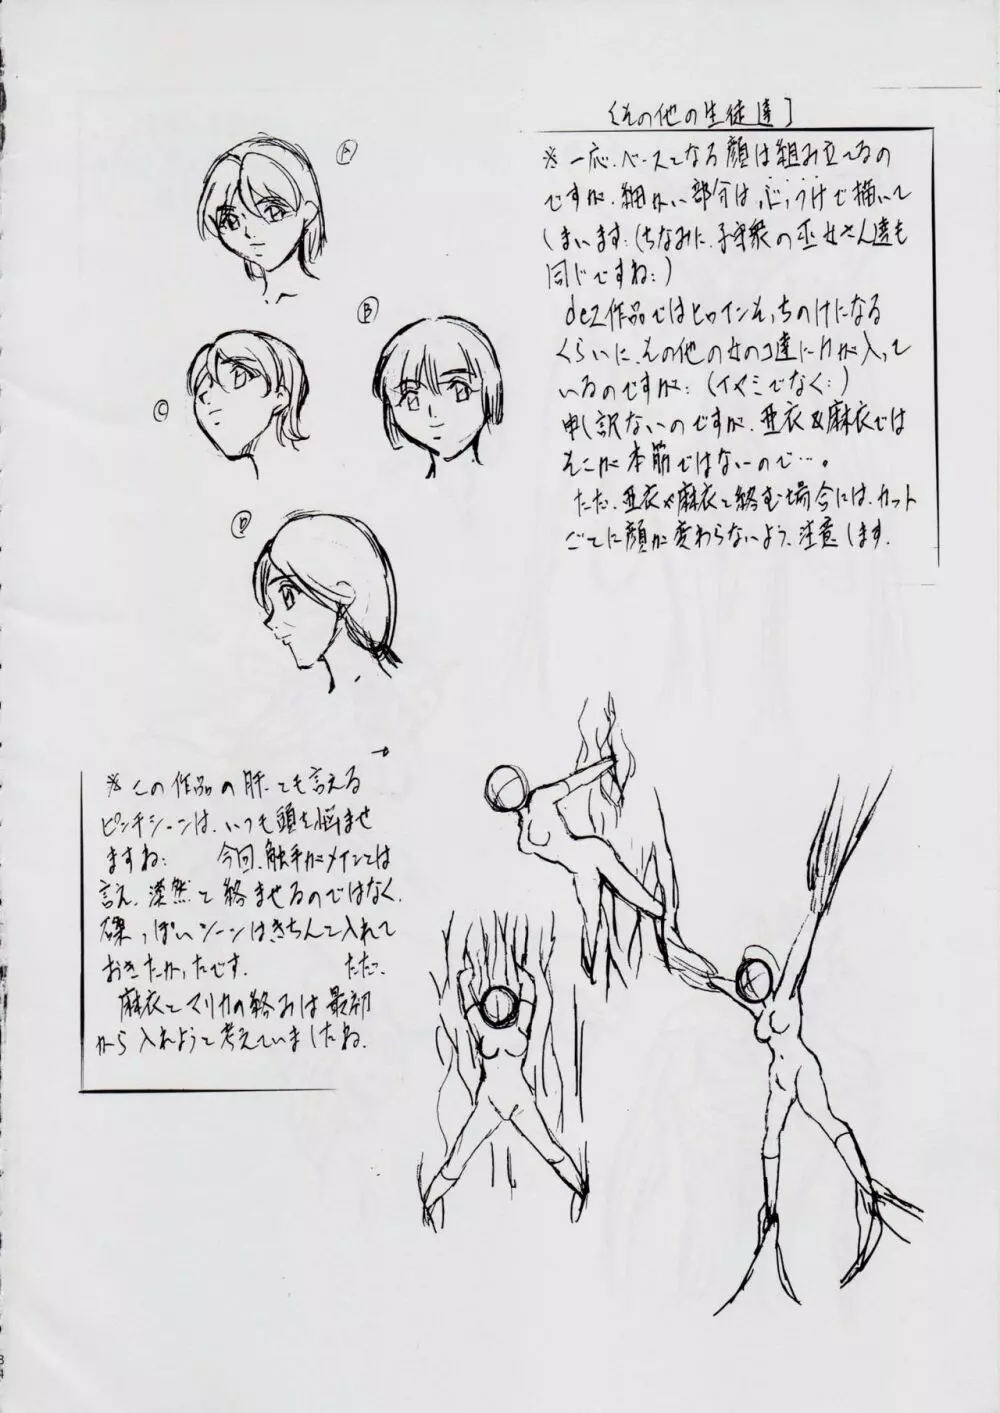 〔その他の生徒達〕
※一応、ベースとなる顔は組み立てるの
ですが、細かい部分は、ぶっつけで描いて
しまいます:(ちなみに、子守衆の巫女さん達も
同じですね:)
dez作品ではヒロインそっちのけになる
くらいに、その他の女のコ達に力が入って
いるのですが:(イヤミでなく:)
申し訳ないのですが、亜衣&麻衣では
そこが本筋ではないので…。
ただ、亜衣や麻衣と絡む場合には、カット
ごとに顔が変わらないよう、注意します。
A
B
C
D
※この作品の肝とも言える
ピンチシーンは、いつも頭を悩ませ
ますね: 今回、触手がメインとは
言え、漠然と絡ませるのではなく、
磔っぽいシーンはきちんと入れて
おきたかったです。 ただ、
麻衣とマリカの絡みは最初
から入れようと考えていましたね。
84